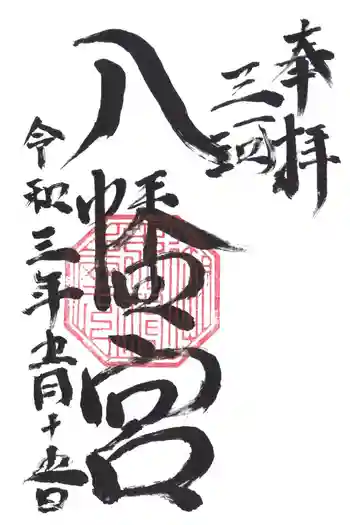 奉拝
三河
八幡宮
令和三年五月十五日